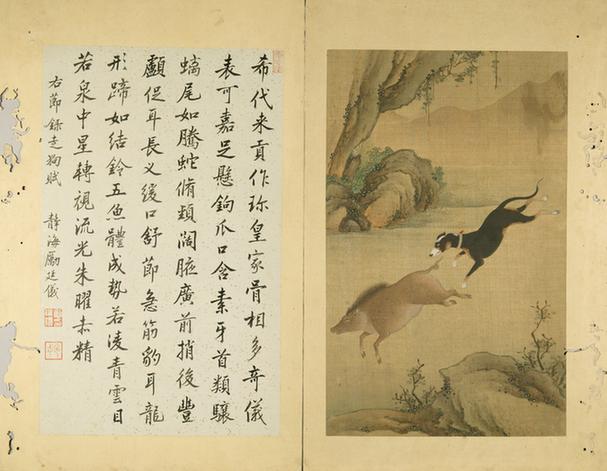 希代来貢作珎皇家骨相多奇儀
表可嘉足懸鉤爪口含素牙首類驤
螭尾如騰蛇脩頸闊腋廣前捎後豐
顱促耳長叉緩口舒節急筋豹耳龍
形蹄如結鈴五魚體成勢若凌青雲目
若泉中星轉視流光朱曜赤精
右節錄走狗賦　靜海勵廷儀